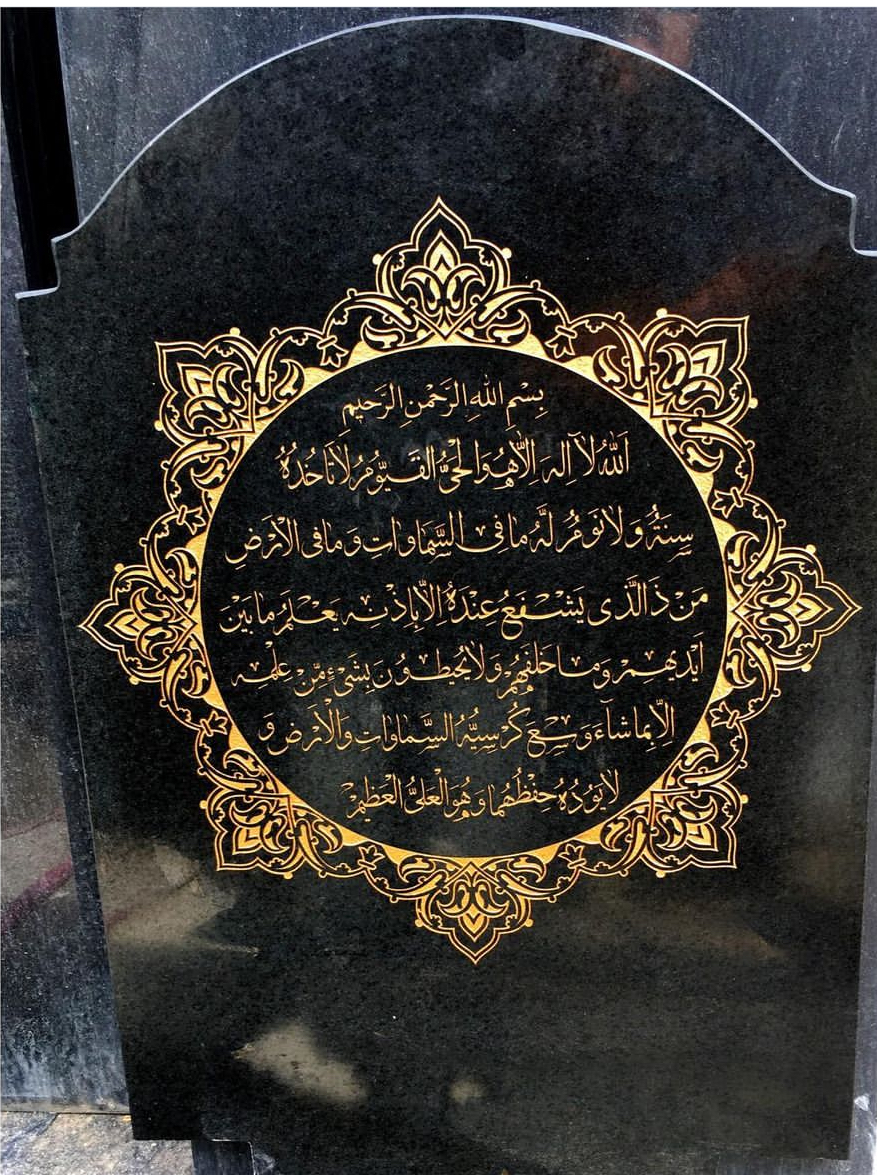 بِسْمِ اللهِ الرَّحْمنِ الرَّحيمِ
اَللهُ لآَ اِلهَ اِلاَّ هُوَ الْحَىُّ الْقَيُّومُ لاَ تَاْخُذُهُ
سِنَةٌ وَلاَ نَوْمٌ لَهُ مَا فِى السَّمَاوَاتِ وَمَا فِى الْاَرْضِ
مَنْ ذَا الَّذى يَشْفَعُ عِنْدَهُ اِلاَّ بِاِذْنِه يَعْلَمُ مَا بَيْنَ
اَيْديهِمْ وَمَا خَلْفَهُمْ وَلاَ يُحيطُونَ بِشَىْءٍ مِنْ عِلْمِه
اِلاَّ بِمَا شَآءَ وَسِعَ كُرْسِيُّهُ السَّمَاوَاتِ وَالْاَرْضِ وَ
لاَ يَؤُدُهُ حِفْظُهُمَا وَهُوَ الْعَلِىُّ الْعَظيمُ